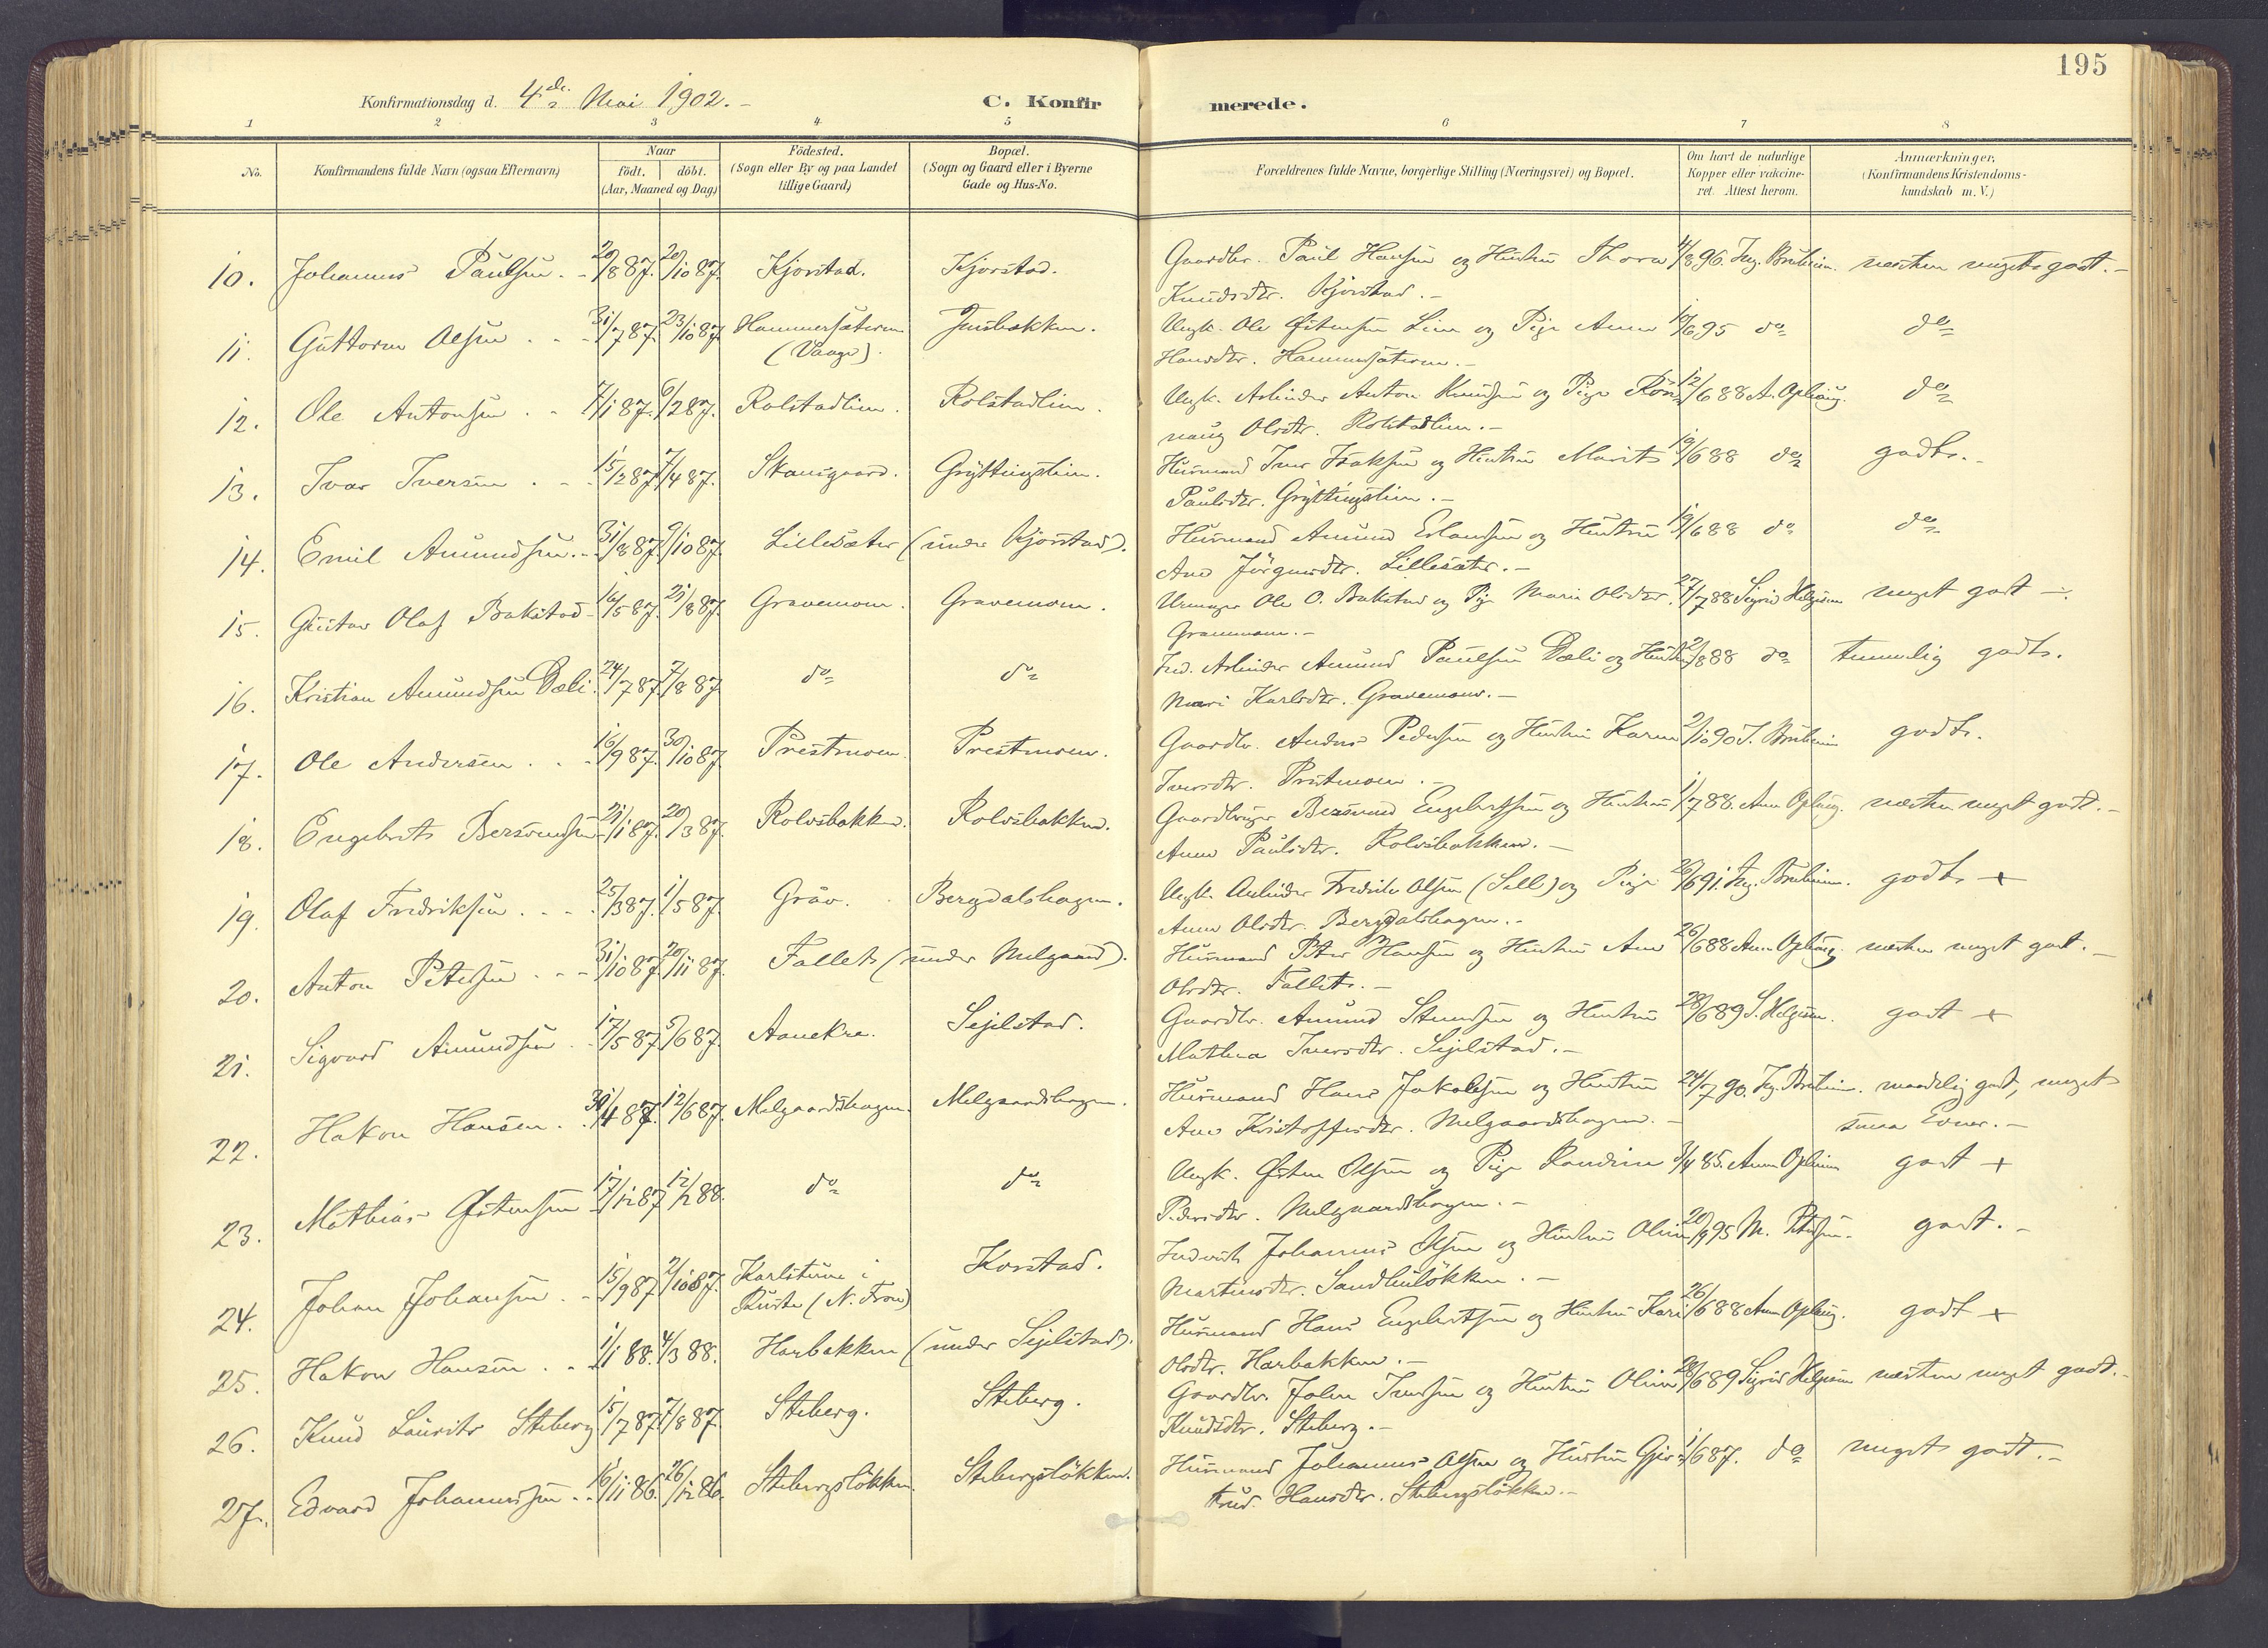 195
Konfirmationsdag d. 4de Mai 1902.-
C. Konfirmerede.
1 2 3 4 5 6 7 8
No. Konfirmandens fulde Navn (ogsaa Efternavn) Naar födt. döbt. (Aar, Maaned og Dag) Födested. (Sogn eller By og paa Landet tillige Gaard) Bopæl. (Sogn og Gaard eller i Byerne Gade og Hus-No. Forældrenes fulde Navne, borgerlige Stilling (Næringsvei) og Bopæl. Om havt de naturlige Kopper eller vakcineret. Attest herom. Anmærkninger, (Konfirmandens Kristendomskundskab m. V.)
10. Johannes Paulsen. 20/8 87. 20/10 87. Kjorstad. Kjorstad. Gaardbr. Paul Hansen og Hustru Thora 4/8 96. Ing. Bruheim. næsten meget godt.-
Knudsdtr. Kjorstad.-
11. Guttorm Olsen 31/7 87. 23/10 87. Hammersæteren Jansbakken. Ungk. Ole Østensen Lien og Pige Anne 10/6 95 do do
(Vaage). Hansdtr. Hammersæteren.-
12. Ole Antonsen 7/1 87. 6/2 87. Rolstadlien. Rolstadlien. Ungk. Arbeider Anton Knudsen og Pige Røn- 12/6 88 A. Opheug. do
naug Olsdtr. Rolstadlien.-
13. Ivar Iversen 15/2 87. 7/4 87. Skansgaard. Gryttingslien. Husmand Iver Isaksen og Hustru Marit 19/6 88 do godt.-
Paulsdtr. Gryttingslien.-
14. Emil Amundsen. 31/8 87. 9/10 87. Lillesæter (under Kjorstad). Husmand Amund Erlandsen og Hustru 19/6 88 do do
Ane Jörgensdtr. Lillesæter.-
15. Gustav Olaf Bakstad 16/5 87. 21/8 87. Gravemoen. Gravemoen. Urmager Ole O. Bakstad og Pige Marie Olsdtr. 27/7 88 Sigrid Helgesen meget godt -.
Gravemoen.-
16. Kristian Amundsen Dæli. 24/7 87. 7/8 87. do do Ind. Arbeider Amund Paulsen Dæli og Hustru 2/8 88 do temmelig godt.
Mari Karlsdtr. Gravemoen.-
17. Ole Andersen 16/9 87. 30/10 87. Prestmoen. Prestmoen. Gaardbr. Anders Pedersen og Hustru Karen 2/10 90 I. Bruheim godt.
Iversdtr. Prestmoen.-
18. Engebret Bersvendsen 21/1 87. 20/3 87. Rolvsbakken. Rolvsbakken. Gaardbruger Bersvend Engebretsen og Hustru 1/7 88. Anne Opheug. næsten meget godt.-
Anne Paulsdtr. Rolvsbakken.-
19. Olaf Fredriksen 25/3 87. 1/5 87. Gräv. Bergdalshagen. Ungk. Arbeider Fredrik Olsen (Sell) og Pige 26/6 91. Ing. Bruheim. godt +
Anne Olsdtr. Bergdalshagen.-
20. Anton Petersen 31/10 87. 20/11 87. Fallet (under Melgaard). Husmand Peter Hansen og Hustru Ane 26/6 88 Anne Opheug næsten meget godt.-
Olsdtr. Fallet.-
21. Sigvard Amundsen 17/5 87. 5/6 87. Aanekre. Sejelstad. Gaardbr. Amund Steensen og Hustru 28/6 89 S. Helgesen. godt +
Mathea Iversdtr. Sejelstad.-
22. Hakon Hansen. 30/4 87. 12/6 87. Melgaardshagen. Melgaardshagen. Husmand Hans Jakobsen og Hustru 24/7 90. Ing. Bruheim. maadelig godt, meget
Ane Kristoffersdtr. Melgaardshagen.- smaa Evner.-
23. Mathias Østensen 17/12 87. 12/2 88. do do Ungk. Østen Olsen og Pige Randine 3/4 85. Anne Opheim godt +
Pedersdtr. Melgaardshagen.-
24. Johan Johansen 15/9 87. 2/10 87. Karlstuen i Korstad. Inderst Johannes Olsen og Hustru Oline 20/9 95 M. Petersen. godt.-
Kusten (N. Fron) Martinsdtr. Sandbuløkken.-
25. Hakon Hansen 1/1 88. 4/3 88. Harbakken (under Sejelstad). Husmand Hans Engebretsen og Hustru Kari 26/6 88 Anne Opheug. godt +
Olsdtr. Harbakken.-
26. Knud Laurits Steberg 15/7 87. 7/8 87. Steberg. Steberg. Gaardbr. Johan Iversen og Hustru Oline 28/6 89 Sigrid Helgesen næsten meget godt.-
Knudsdtr. Steberg.-
27. Edvard Johannessen 16/11 86. 26/12 86. Stebergsløkken. Stebergsløkken. Husmand Johannes Olsen og Hustru Gjer- 1/6 87. do meget godt.-
trud Hansdtr. Stebergsløkken.-